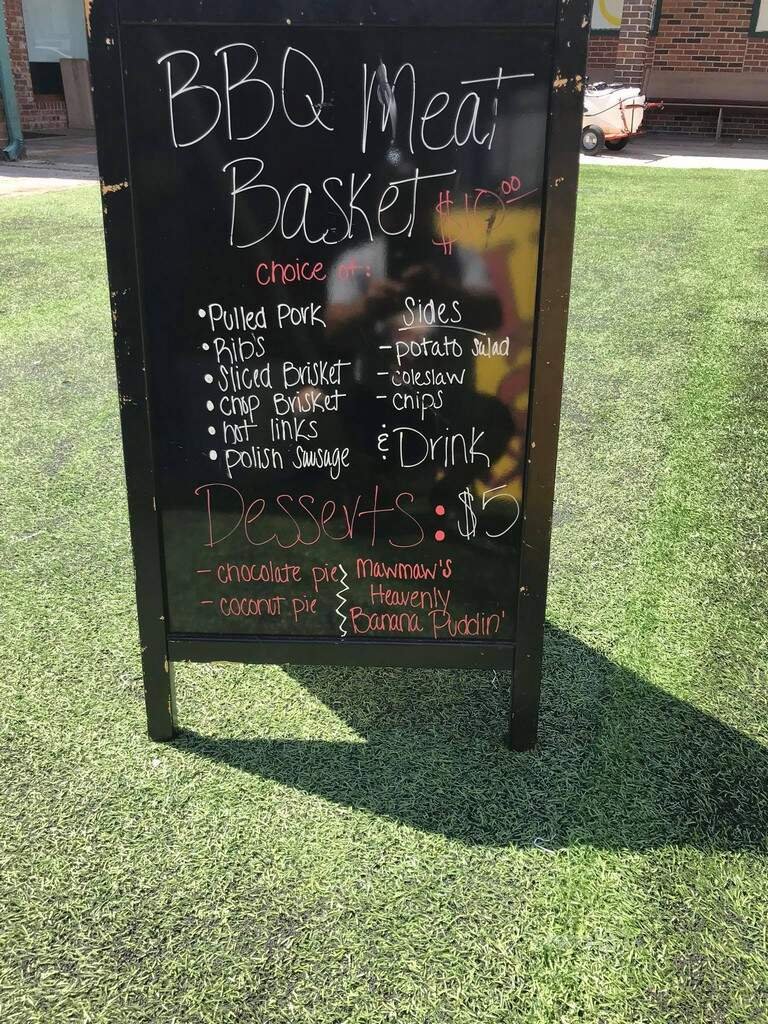 BBQ Meat
Basket $10.00
choice of:
• Pulled Pork
• Rib's
• Sliced Brisket
• Chop Brisket
• hot links
• polish Sausage
Sides
- potato salad
- coleslaw
- chips
& Drink
Desserts: $5
- chocolate pie
- coconut pie
Mawmaw's
Heavenly
Banana Puddin'